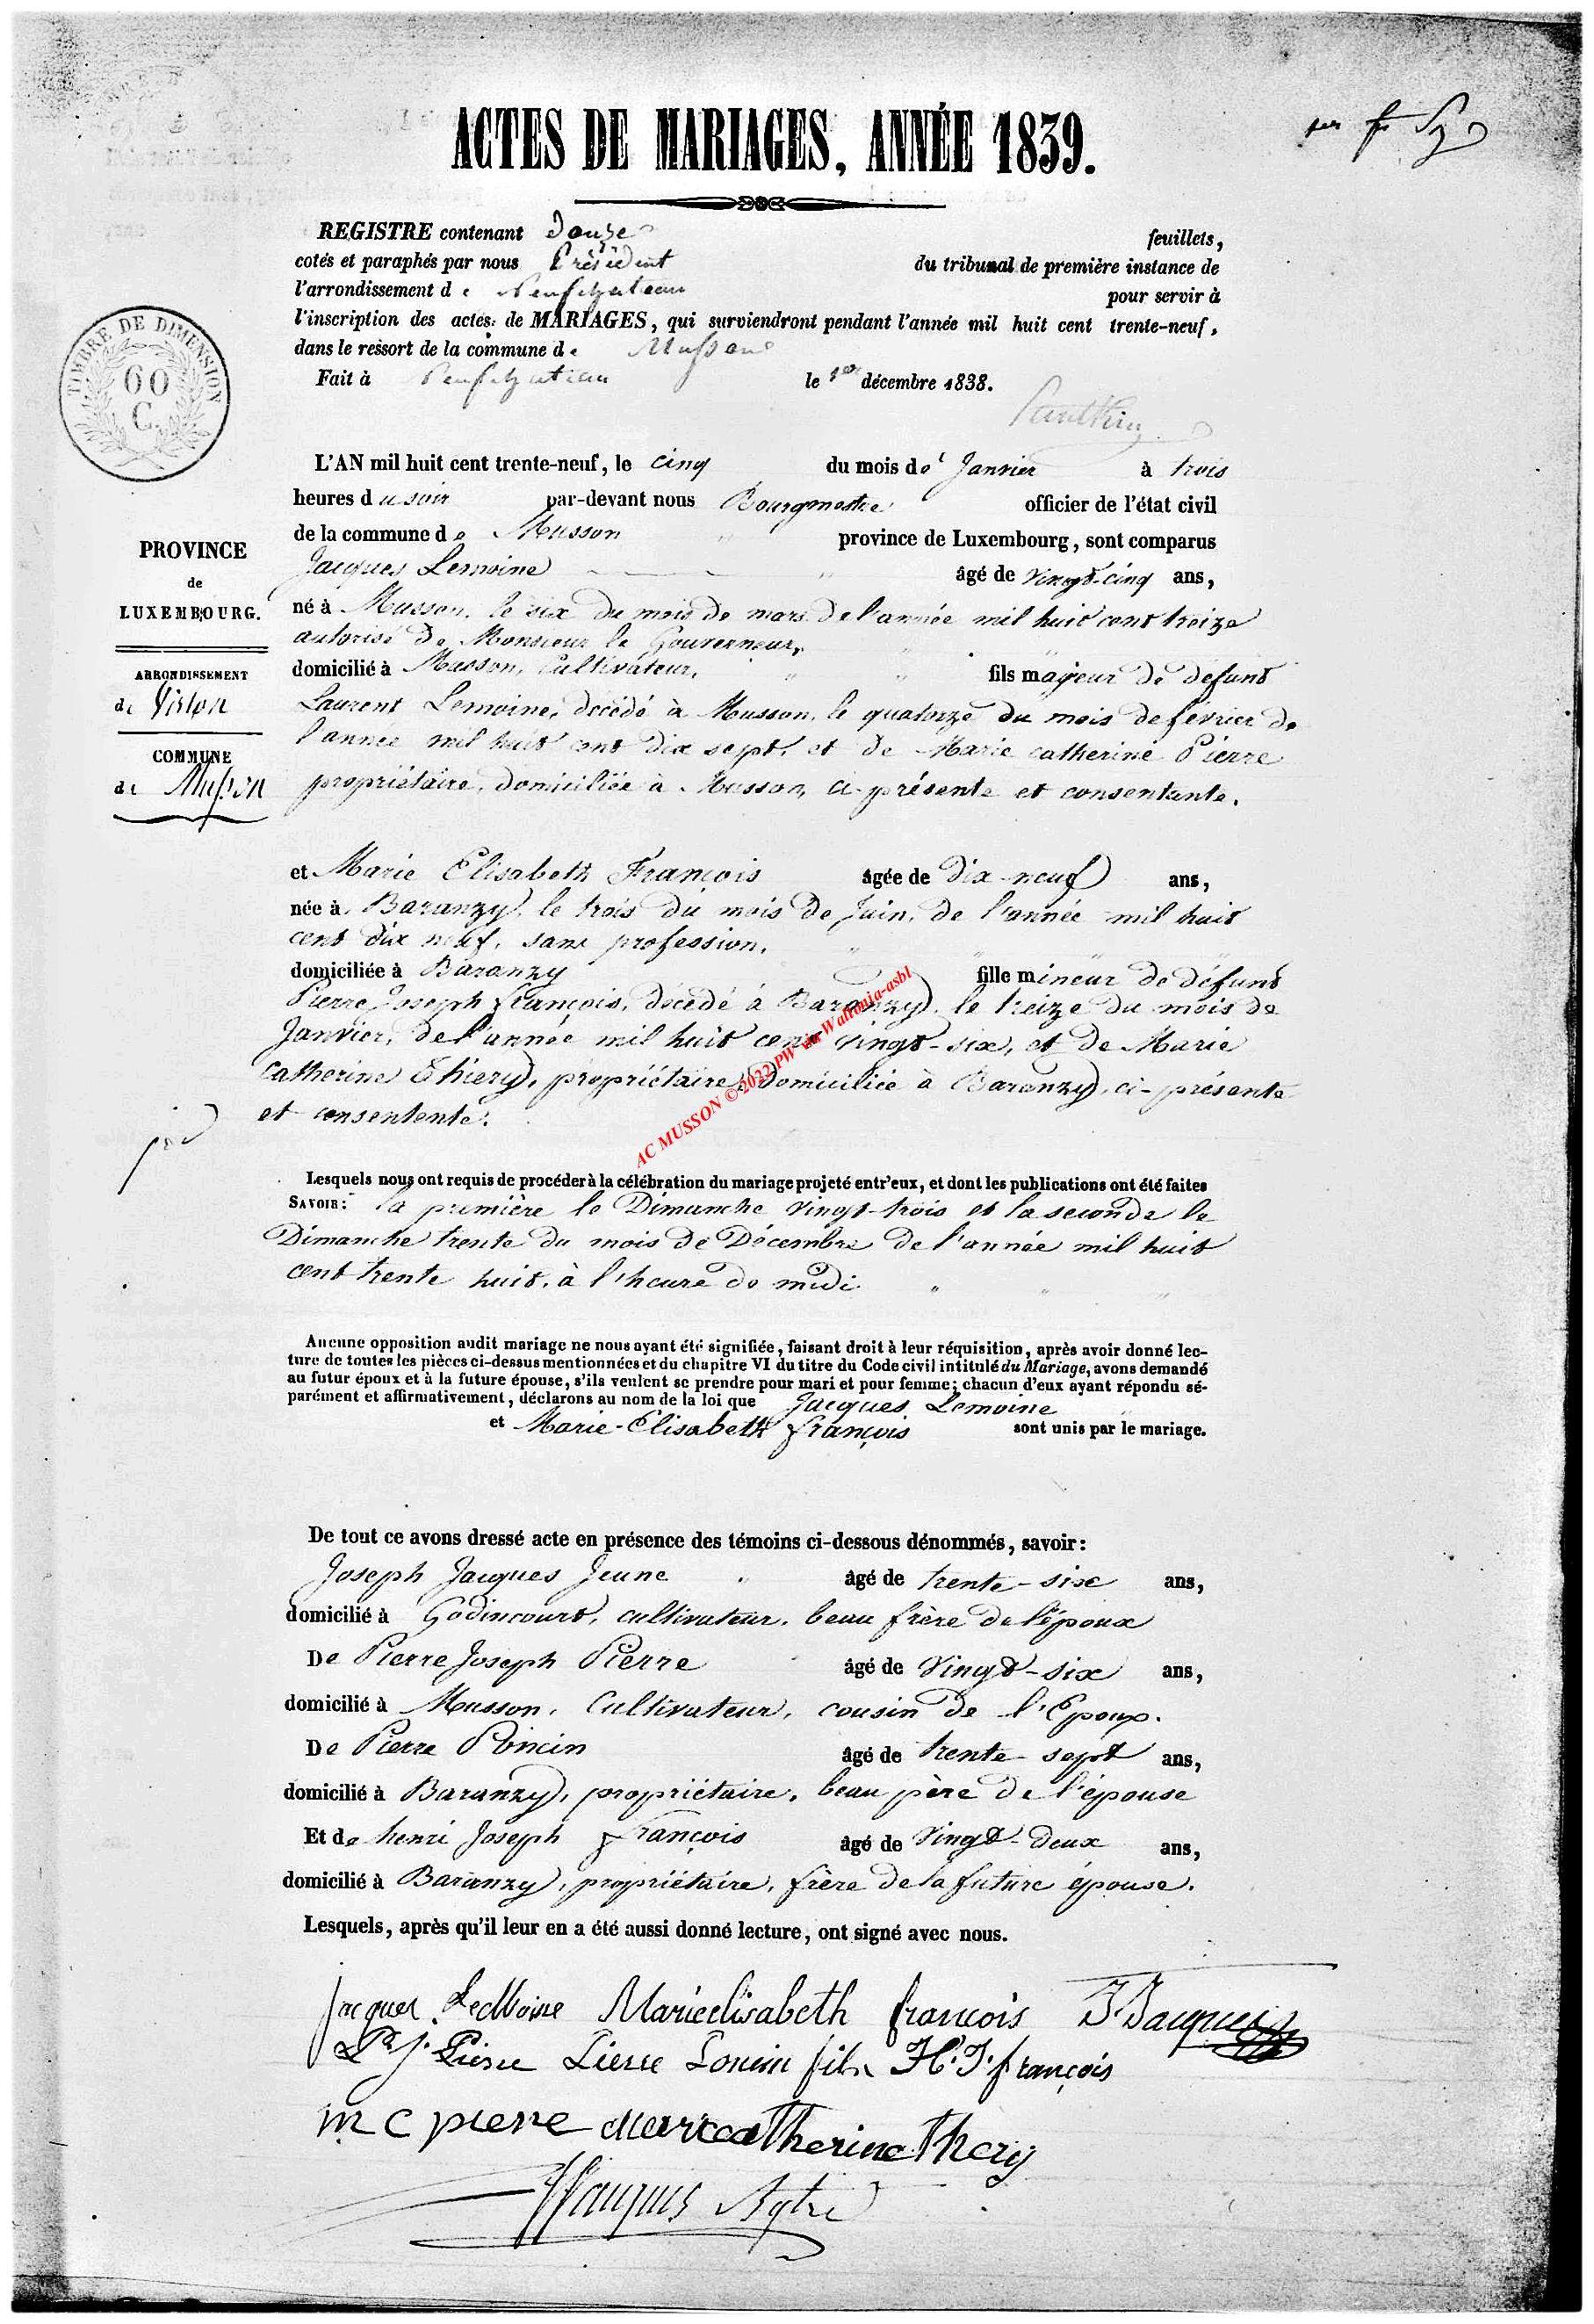 ACTES DE MARIAGES, ANNÉE 1839.
REGISTRE contenant Douze feuillets,
cotés et paraphés par nous Président du tribunal de première instance de
l'arrondissement de Neufchateau pour servir à
l'inscription des actes de MARIAGES, qui surviendront pendant l'année mil huit cent trente-neuf,
dans le ressort de la commune de Musson
Fait à Neufchateau le 1er décembre 1838.
TIMBRE DE DIMENSION
60
C.
L'AN mil huit cent trente-neuf, le cinq du mois de Janvier à trois
heures du soir par-devant nous Bourgmestre officier de l'état civil
de la commune de Musson province de Luxembourg, sont comparus
Jacques Lemoine âgé de vingt-cinq ans,
né à Musson, le six du mois de mars de l'année mil huit cent treize
autorisé de Monsieur le Gouverneur,
domicilié à Musson, Cultivateur, fils majeur de défunt
Laurent Lemoine, décédé à Musson, le quatorze du mois de février de
l'année mil huit cent dix sept, et de Marie catherine Pierre
propriétaire, domiciliée à Musson, ci-présente et consentante.
PROVINCE
de
LUXEMBOURG.
ARRONDISSEMENT
de Virton
COMMUNE
de Musson
et Marie Elisabeth François âgée de dix-neuf ans,
née à Baranzy, le trois du mois de Juin, de l'année mil huit
cent dix neuf, sans profession,
domiciliée à Baranzy fille mineur de défunt
Pierre Joseph françois, décédé à Baranzy, le treize du mois de
Janvier, de l'année mil huit cent vingt-six, et de Marie
Catherine Thiery, propriétaire, Domiciliée à Baranzy, ci-présente
et consentente.
AC MUSSON © 2022 PW via Wallonia-asbl
Lesquels nous ont requis de procéder à la célébration du mariage projeté entr'eux, et dont les publications ont été faites
SAVOIR: la première le Dimanche vingt-trois et la seconde le
Dimanche trente du mois de Décembre de l'année mil huit
cent trente huit, à l'heure de midi
Aucune opposition audit mariage ne nous ayant été signifiée, faisant droit à leur réquisition, après avoir donné lec-
ture de toutes les pièces ci-dessus mentionnées et du chapitre VI du titre du Code civil intitulé du Mariage, avons demandé
au futur époux et à la future épouse, s'ils veulent se prendre pour mari et pour femme; chacun d'eux ayant répondu sé-
parément et affirmativement, déclarons au nom de la loi que Jacques Lemoine
et Marie-Elisabeth françois sont unis par le mariage.
De tout ce avons dressé acte en présence des témoins ci-dessous dénommés, savoir:
Joseph Jacques Jeune âgé de trente-six ans,
domicilié à Godincourt, cultivateur, beau frère de l'époux
De Pierre Joseph Pierre âgé de vingt-six ans,
domicilié à Musson, Cultivateur, cousin de l'Epoux.
De Pierre Poncin âgé de trente-sept ans,
domicilié à Baranzy, propriétaire, beau père de l'épouse
Et de henri Joseph françois âgé de vingt-deux ans,
domicilié à Baranzy, propriétaire, frère de la future épouse.
Lesquels, après qu'il leur en a été aussi donné lecture, ont signé avec nous.
jacques LeMoine Marieelisabeth francois J. Jacques
P. J. Pierre Pierre Poncin fils H. J. françois
m c pierre mariecatherine Thery